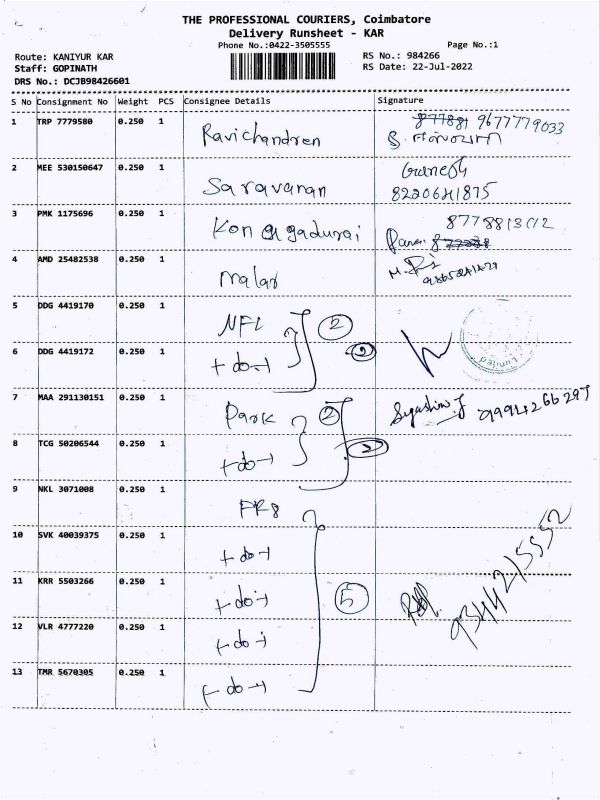 THE PROFESSIONAL COURIERS, Coimbatore
Delivery Runsheet - KAR
Phone No.:0422-3505555
Page No.:1
Route: KANIYUR KAR
RS No.: 984266
Staff: GOPINATH
RS Date: 22-Jul-2022
DRS No.: DCJB98426601
S No Consignment No Weight PCS Consignee Details Signature
1 TRP 7779580 0.250 1 Ravichandren 9677779033
2 MEE 530150647 0.250 1 Saravanan
3 PMK 1175696 0.250 1
4 AMD 25482538 0.250 1 malar
5 DDG 4419170 0.250 1 NFL 2
6 DDG 4419172 0.250 1 -do- 2
Limited
7 MAA 291130151 0.250 1 Park 2
8 TCG 50206544 0.250 1 -do- 2
9 NKL 3071008 0.250 1
10 SVK 40039375 0.250 1 -do-
11 KRR 5503266 0.250 1 -do- 5 9344215552
12 VLR 4777220 0.250 1 -do-
13 TMR 5670305 0.250 1 -do-